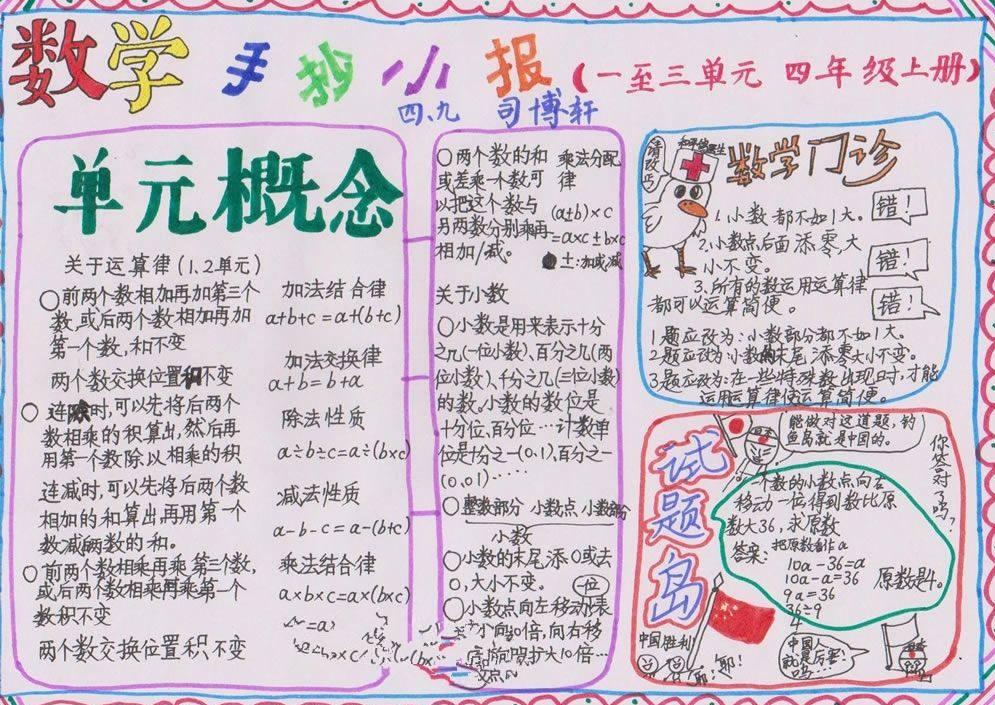 数学 手抄小报（一至三单元 四年级上册）
四、九 司博轩
单元概念
关于运算律（1、2单元）
○前两个数相加再加第三个
数，或后两个数相加再加
第一个数，和不变
加法结合律
a+b+c=a+(b+c)
两个数交换位置和不变
加法交换律
a+b=b+a
○连除时，可以先将后两个
数相乘的积算出，然后再
用第一个数除以相乘的积
除法性质
a÷b÷c=a÷(b×c)
连减时，可以先将后两个数
相加的和算出再用第一个
数减两数的和。
减法性质
a-b-c=a-(b+c)
○前两个数相乘再乘第三个数，
或后两个数相乘再乘第一个
数积不变
乘法结合律
a×b×c=a×(b×c)
两个数交换位置积不变
○两个数的和
或差乘一个数可
以把这个数与
另两数分别乘再
相加/减。
乘法分配
律
(a±b)×c
=a×c±b×c
±:加或减
关于小数
○小数是用来表示十分
之几(一位小数)、百分之几(两
位小数)、千分之几(三位小数)
的数，小数的数位是
十分位、百分位…计数单
位是十分之一(0.1)，百分之一
(0.01)……
○整数部分 小数点 小数部分
小数
○小数的末尾添0或去
0，大小不变。
一位
○小数点向左移动
10倍，向右移
扩大10倍…
数学门诊
请改吗
1.小数都不如1大。
错！
2.小数点后面添零大
小不变。
错！
3.所有的数运用运算律
都可以运算简便。
错！
1题应改为：小数部分都不如1大。
2题应改为小数的末尾添零大小不变。
3题应改为：在一些特殊数出现时，才能
运用运算律使运算简便。
试题岛
能做对这道题，钓
鱼岛就是中国的。
你答对了吗？
一个数的小数点向右
移动一位得到数比原
数大36，求原数
答案：把原数看作a
10a-36=a
10a-a=36
9a=36
36÷9
4
原数是4。
中国胜利
耶！
耶！
中国
就是厉害！